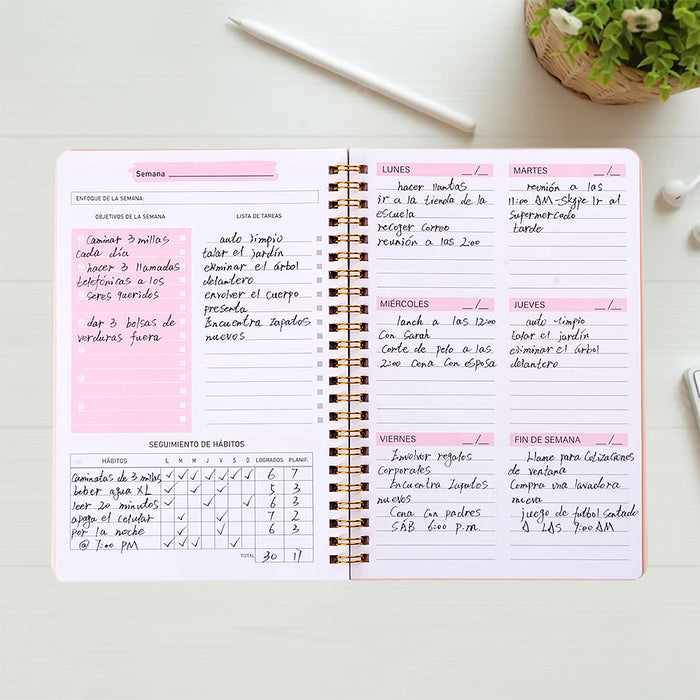 Semana
ENFOQUE DE LA SEMANA:
OBJETIVOS DE LA SEMANA
Caminar 3 millas
cada día
hacer 3 llamadas
telefónicas a los
seres queridos
dar 3 bolsas de
verduras fuera
LISTA DE TAREAS
auto limpio
talar el jardín
eliminar el árbol
delantero
envolver el cuerpo
presenta
Encuentra zapatos
nuevos
SEGUIMIENTO DE HÁBITOS
HÁBITOS L M M J V S D LOGRADOS PLANIF.
caminatas de 3 millas ✓ ✓ ✓ ✓ ✓ ✓ ✓ 6 7
beber agua XL ✓ ✓ ✓ ✓ 5 3
leer 20 minutos ✓ ✓ ✓ 6 3
apaga el celular ✓ ✓ 7 2
por la noche ✓ ✓ 6 3
@ 7:00 PM ✓ ✓ ✓ ✓
TOTAL 30 17
LUNES __/__
hacer llantas
ir a la tienda de la
escuela
recoger correo
reunión a las 2:00
MARTES __/__
reunión a las
11:00 AM-Skype Ir al
supermercado
tarde
MIÉRCOLES __/__
lanch a las 12:00
Con Sarah
Corte de pelo a las
2:00 Cena Con esposa
JUEVES __/__
auto limpio
talar el jardín
eliminar el árbol
delantero
VIERNES __/__
Envolver regalos
Corporates
Encuentra Zapatos
nuevos
Cena Con padres
SÁB 6:00 p.m.
FIN DE SEMANA __/__
Llame para Cotizaciones
de ventana
Compra una lavadora
nueva
juego de futbol sentado
A LAS 9:00 AM